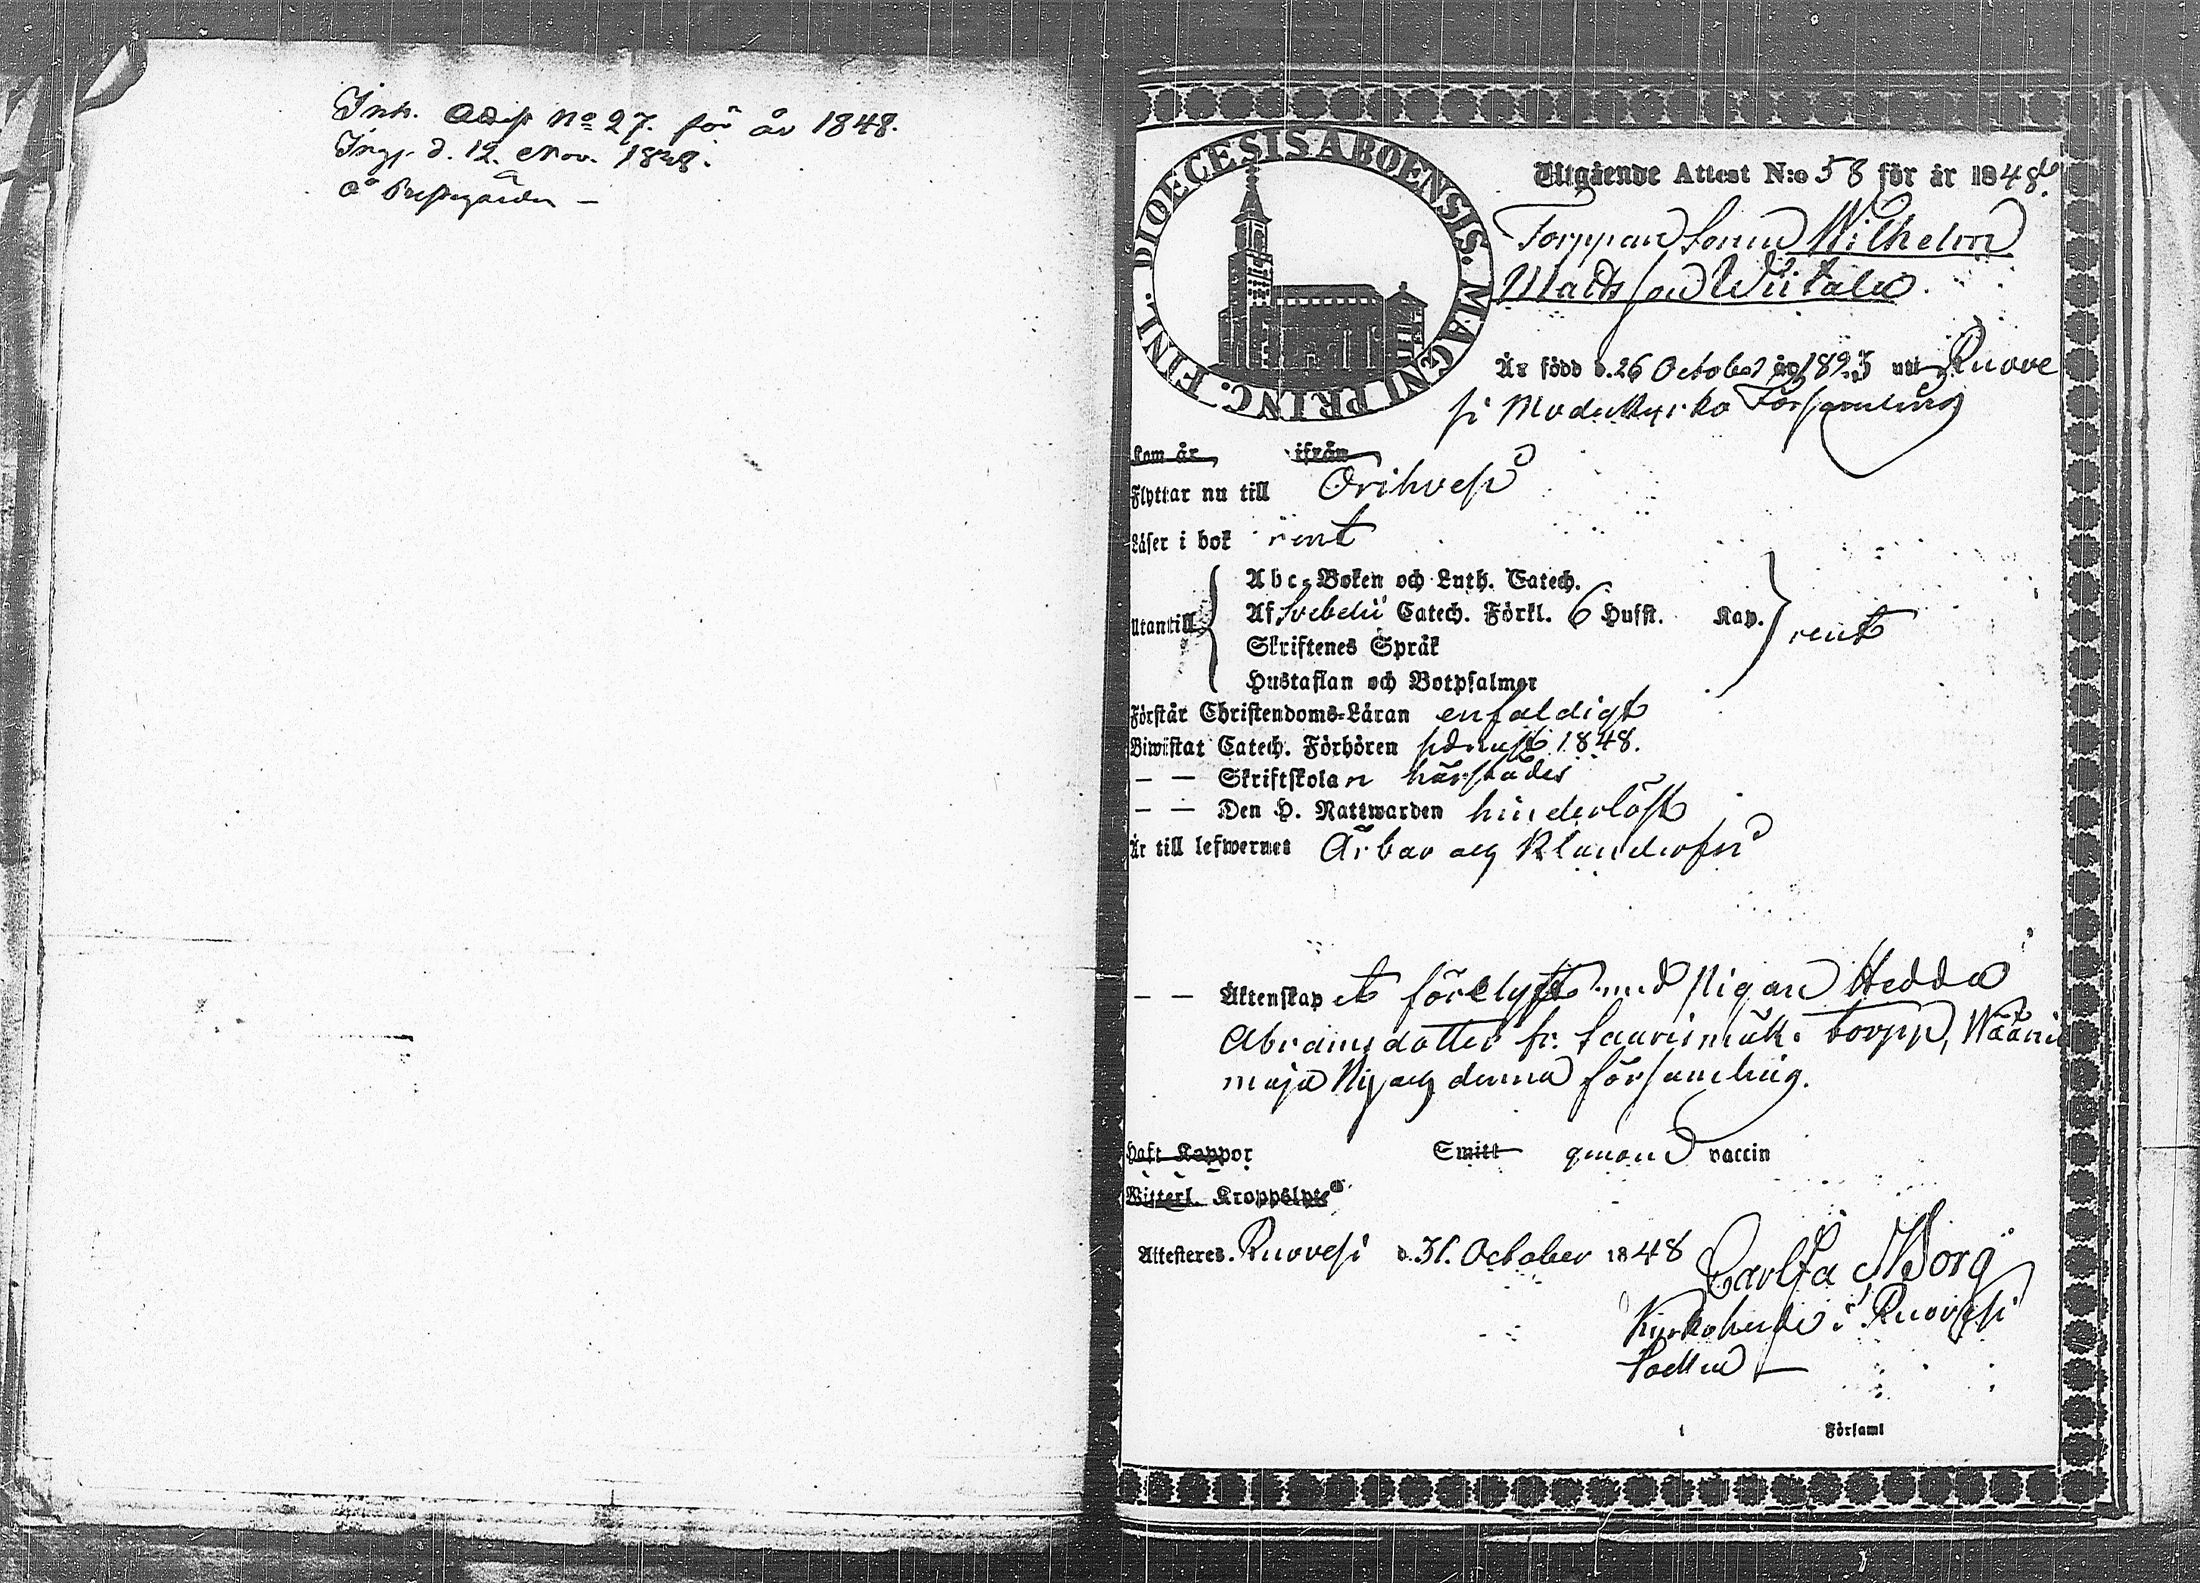 Ink. Attest No 27. för år 1848.
d. 12. Nov. 1848.
å Prestgården —
DIOECESIS ABOENSIS. MAGNI PRINC. FINL.
Utgående Attest N:o 58 för år 1848
Torppare Sonen Wilhelm
Mattsson Wiitala
Är född d. 26 October år 1823 uti Ruove
si Moderkyrko Församling
Kom år ifrån
Flyttar nu till Orihvesi
Läser i bok rent
Utantill
Abc-Boken och Luth. Catech.
Af Svebelii Catech. Förkl. 6 Hufst. Kap.
rent
Skriftenes Språk
Hustaflan och Botpsalmer
Förstår Christendoms-Läran enfaldigt
Biwistat Catech. Förhören sednast 1848.
— — Skriftskolan härstädes
— — Den H. Nattwarden hinderlöst
Är till lefwernet Ärbar och
— — Äktenskap et förelyst med Pigan Hedda
Abramsdotter fr. torpp,
maja denna församling.
Haft Koppor Smitt genom vaccin
Witterl. Kroppslyte
Attesteres. Ruovesi d. 31. October 1848
Borg
Kyrkoherde i Ruovesi
Socken —
i Församl